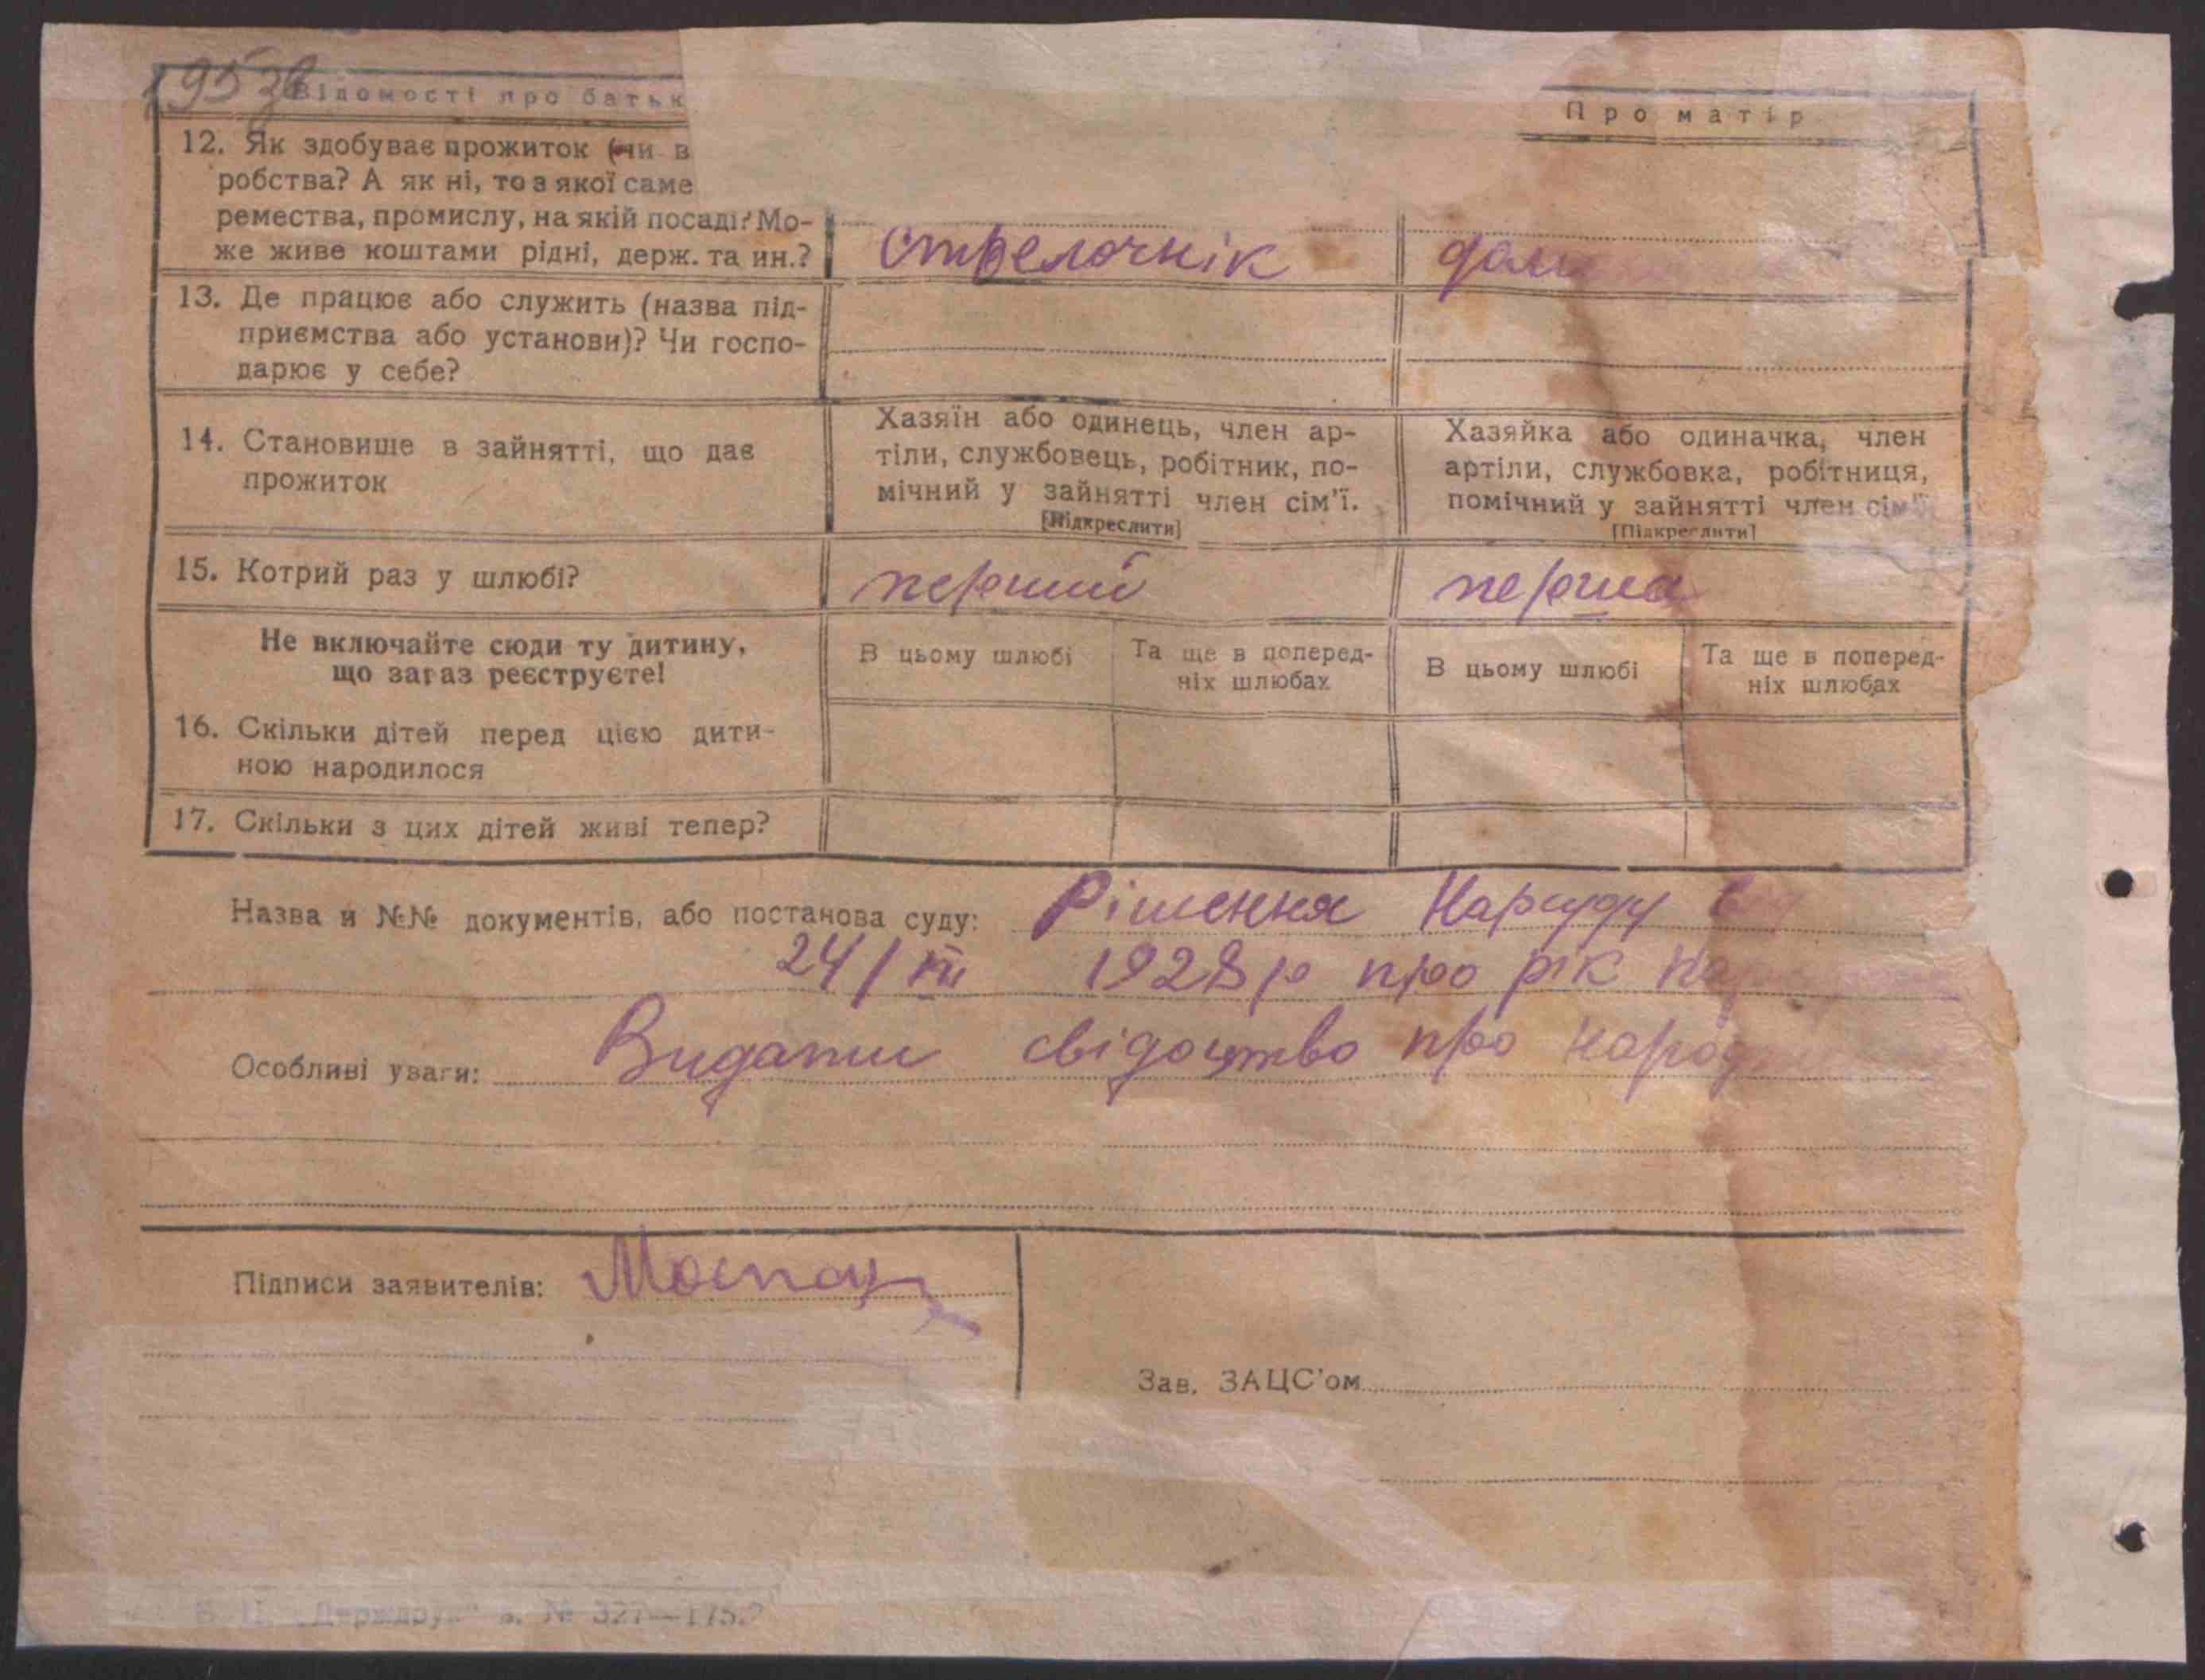 Відомості про батьк
Про матір
12. Як здобуває прожиток (чи в
робства? А як ні, то з якої саме
ремества, промислу, на якій посаді? Мо-
же живе коштами рідні, держ. та ин.?
Стрелочнік
13. Де працює або служить (назва під-
приємства або установи)? Чи госпо-
дарює у себе?
14. Становище в зайнятті, що дає
прожиток
Хазяїн або одинець, член ар-
тіли, службовець, робітник, по-
мічний у зайнятті член сім'ї.
[Підкреслити]
Хазяйка або одиначка, член
артіли, службовка, робітниця,
помічний у зайнятті член сім'ї
[Підкреслити]
15. Котрий раз у шлюбі?
перший
перша
Не включайте сюди ту дитину,
що зараз реєструєте!
В цьому шлюбі
Та ще в поперед-
ніх шлюбах
В цьому шлюбі
Та ще в поперед-
ніх шлюбах
16. Скільки дітей перед цією дити-
ною народилося
17. Скільки з цих дітей живі тепер?
Назва и №№ документів, або постанова суду: Рішення Нарсуду від
24/ 1928 р про рік
Особливі уваги: Видати свідоцтво про народж
Підписи заявителів:
Зав. ЗАЦС'ом
"Держдрук" з. № 327—175